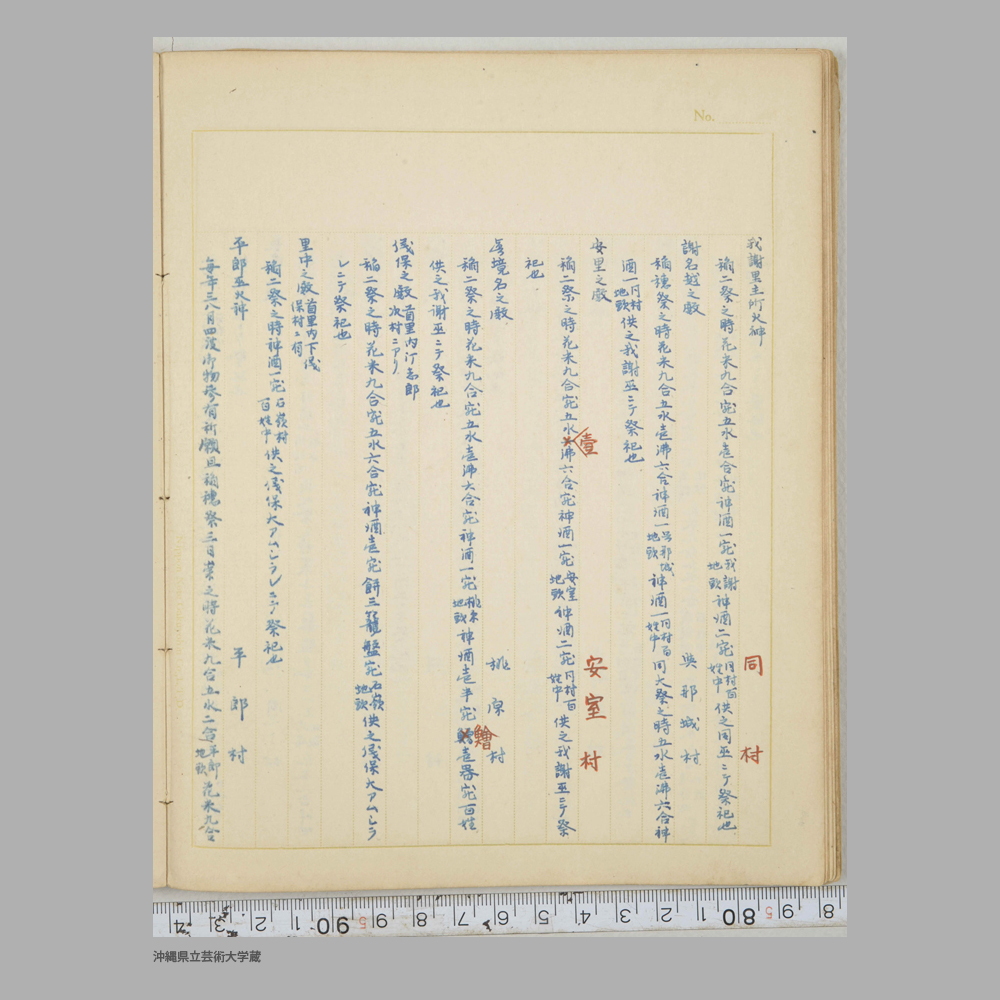 No.
我謝里主所火神 同村
稲二祭之時花米九合宛五水壱合宛神酒一宛我謝地頭神酒二宛同村百姓中供之同巫ニテ祭祀也
謝名越之殿 與那城村
稲穂祭之時花米九合五水壱沸六合神酒一與那城地頭神酒一同村百姓中同大祭之時五水壱沸六合神
酒一同村地頭供之我謝巫ニテ祭祀也
安里之殿 安室村
稲二祭之時花米九合宛五水壹沸六合宛神酒一宛安室地頭神酒二宛同村百姓中供之我謝巫ニテ祭
祀也
境名之殿 桃原村
稲二祭之時花米九合宛五水壱沸六合宛神酒一宛桃原地頭神酒壱半宛鱠壱器宛百姓
供之我謝巫ニテ祭祀也
儀保之殿 首里内汀志郎次村ニアリ
稲二祭之時花米九合宛五水六合宛神酒壱宛餅三籠盤宛石嶺地頭供之儀保大アムシラ
レニテ祭祀也
里中之殿 首里内下儀保村ニ有
稲二祭之時神酒一宛石嶺村百姓中供之儀保大アムシラレニテ祭祀也
平郎巫火神 平郎村
毎年三八月四度御物参有祈願且稲穂祭三日崇之時花米九合五水二合平郎地頭花米九合
8 9 5 80 1 2 3 4 5 6 7 8 5 90 1 2 3 4
沖縄県立芸術大学蔵